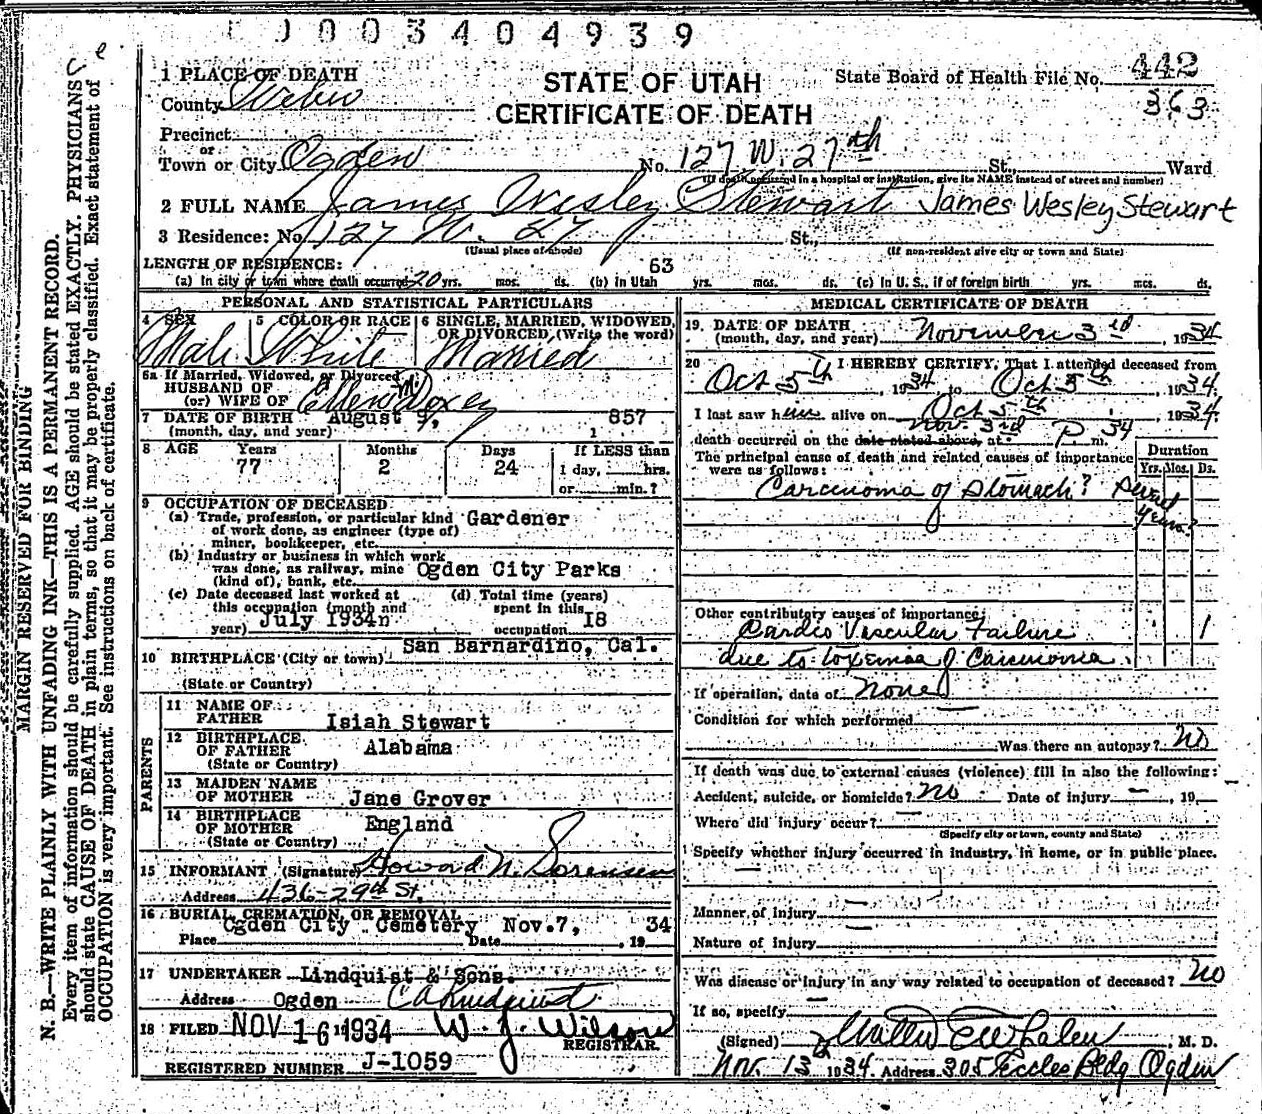 0003404939
1 PLACE OF DEATH
County Weber
STATE OF UTAH
CERTIFICATE OF DEATH
State Board of Health File No. 442
363
Precinct
or
Town or City Ogden No. 127 W. 27th St., Ward
(If death occurred in a hospital or institution, give its NAME instead of street and number)
2 FULL NAME James Wesley Stewart James Wesley Stewart
3 Residence: No. 127 W. 27 St.,
(Usual place of abode) (If non-resident give city or town and State)
LENGTH OF RESIDENCE:
(a) In city or town where death occurred 20 yrs. mos. ds. (b) in Utah 63 yrs. mos. ds. (c) In U. S., if of foreign birth yrs. mos. ds.
PERSONAL AND STATISTICAL PARTICULARS
4 SEX 5 COLOR OR RACE 6 SINGLE, MARRIED, WIDOWED,
OR DIVORCED, (Write the word)
Male White Married
6a If Married, Widowed, or Divorced
HUSBAND OF
(or) WIFE OF Ellen M. Doxey
7 DATE OF BIRTH August 9, 1857
(month, day, and year)
8 AGE Years Months Days If LESS than
77 2 24 1 day, hrs.
or min.?
9 OCCUPATION OF DECEASED
(a) Trade, profession, or particular kind Gardener
of work done, as engineer (type of)
miner, bookkeeper, etc.
(b) Industry or business in which work
was done, as railway, mine Ogden City Parks
(kind of), bank, etc.
(c) Date deceased last worked at (d) Total time (years)
this occupation (month and spent in this
year) July 1934 occupation 18
10 BIRTHPLACE (City or town) San Barnardino, Cal.
(State or Country)
PARENTS
11 NAME OF
FATHER Isiah Stewart
12 BIRTHPLACE
OF FATHER Alabama
(State or Country)
13 MAIDEN NAME
OF MOTHER Jane Grover
14 BIRTHPLACE
OF MOTHER England
(State or Country)
15 INFORMANT (Signature) Howard N. Sorensen
Address 436-29th St.
16 BURIAL, CREMATION, OR REMOVAL
Ogden City Cemetery Nov.7, 34
Place Date , 19
17 UNDERTAKER Lindquist & Sons.
Address Ogden C A Lindquist
18 FILED NOV 16 1934 W. J. Wilson
REGISTRAR.
REGISTERED NUMBER J-1059
MEDICAL CERTIFICATE OF DEATH
19. DATE OF DEATH
(month, day, and year) November 3rd, 1934
20 I HEREBY CERTIFY, That I attended deceased from
Oct 5th, 1934 to Oct 5th, 1934.
I last saw him alive on Oct 5th, 1934.
Nov. 3rd P 34
death occurred on the date stated above, at m.
The principal cause of death and related causes of importance
were as follows:
Duration
Yrs. Mos. Ds.
Carcinoma of Stomach? Several years?
Other contributory causes of importance:
Cardio Vascular Failure 1
due to toxemia of Carcinoma.
If operation, date of None
Condition for which performed
Was there an autopsy? No
If death was due to external causes (violence) fill in also the following:
Accident, suicide, or homicide? No Date of injury — , 19
Where did injury occur?
(Specify city or town, county and State)
Specify whether injury occurred in industry, in home, or in public place.
Manner of Injury
Nature of Injury
Was disease or injury in any way related to occupation of deceased? No
If so, specify
(Signed) Walter E Whalen, M. D.
Nov. 13th 1934. Address 305 Eccles Bldg Ogden
MARGIN RESERVED FOR BINDING
N. B.—WRITE PLAINLY WITH UNFADING INK—THIS IS A PERMANENT RECORD.
Every item of information should be carefully supplied. AGE should be stated EXACTLY. PHYSICIANS
should state CAUSE OF DEATH in plain terms, so that it may be properly classified. Exact statement of
OCCUPATION is very important. See instructions on back of certificate.